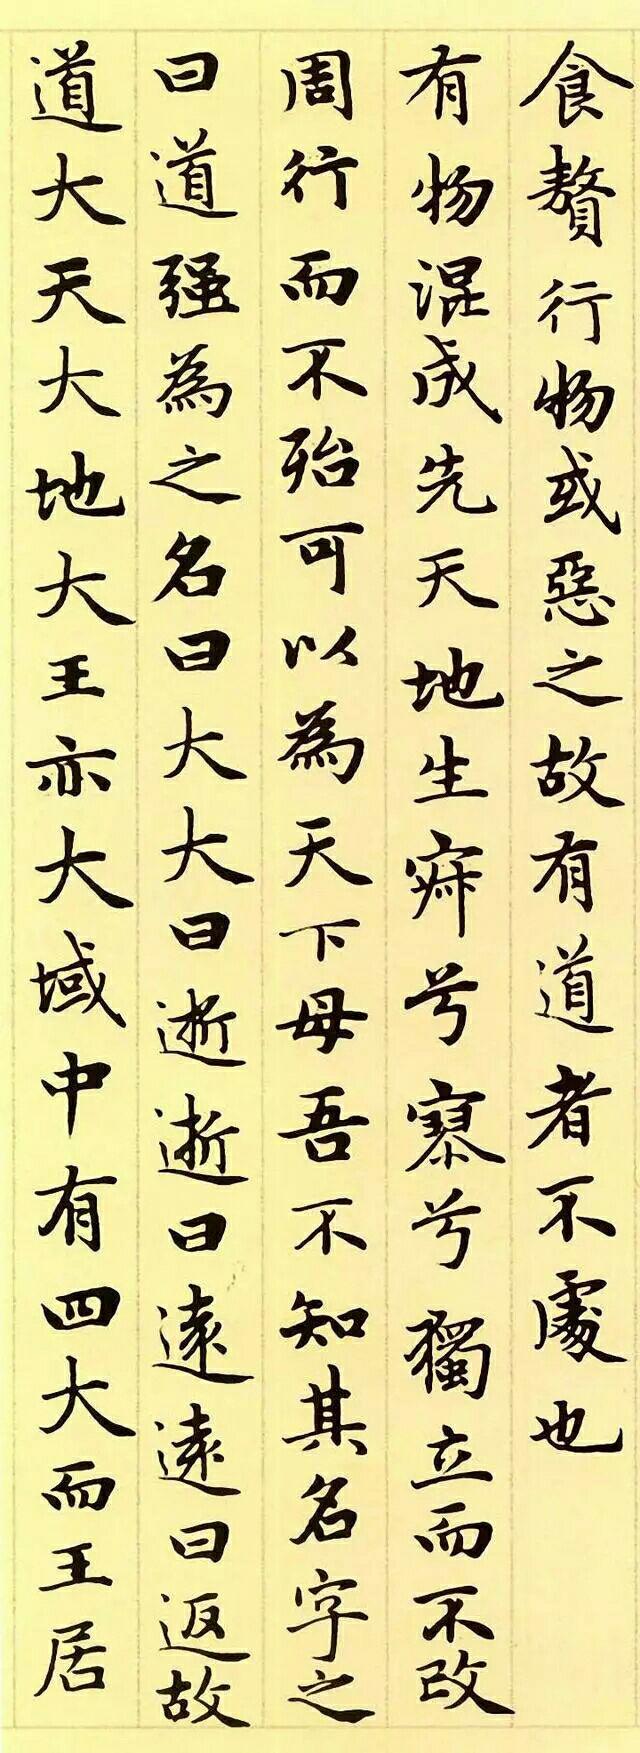 食贅行物或惡之故有道者不處也
有物混成先天地生寂兮寥兮獨立而不改
周行而不殆可以為天下母吾不知其名字之
曰道强為之名曰大大曰逝逝曰遠遠曰返故
道大天大地大王亦大域中有四大而王居